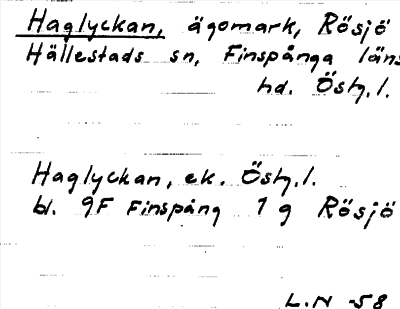 Haglyckan, ägomark, Rösjö
Hällestads sn, Finspånga läns
hd. Östg.l.
Haglyckan, ek. Östg.l.
bl. 9F Finspång 1 g Rösjö
L.N -58